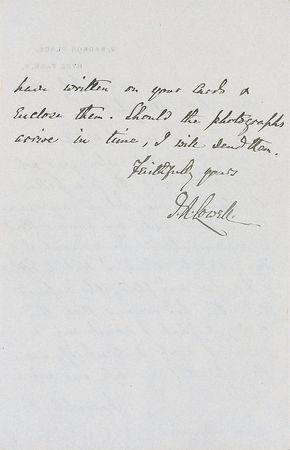 have written on your cards &
enclose them. Should the photographs
arrive in time, I will send them.
Faithfully yours
J. R. Lowell.